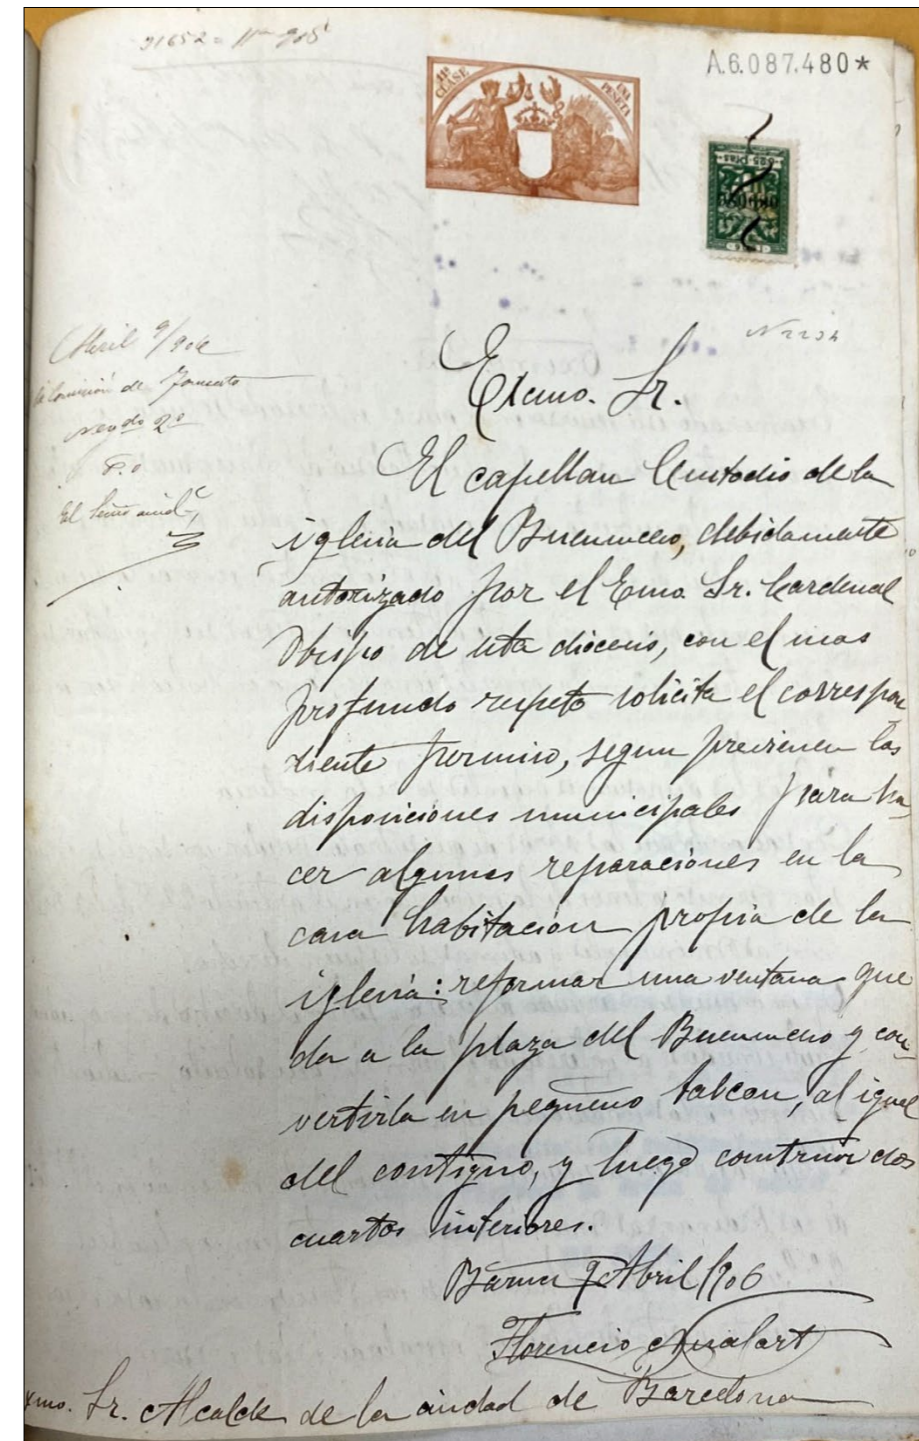 A.6.087.480*
11ª CLASE
UNA PESETA
Abril 9/906
a la Comisión de Fomento
Negdo 2º
P.O
El
Exmo. Sr.
El capellan Custodio de la
iglesia del Buensuceso, debidamente
autorizado por el Emo. Sr. Cardenal
Obispo de esta diócesis, con el mas
profundo respeto solicita el correspon
diente permiso, segun previenen las
disposiciones municipales para ha-
cer algunas reparaciones en la
casa habitación propia de la
iglesia: reformar una ventana que
da a la plaza del Buensuceso y con-
vertirla en pequeño balcon, al igual
del contiguo, y luego construir dos
cuartos interiores.
Barna 9 Abril 1906
Florencio
Exmo. Sr. Alcalde de la ciudad de Barcelona